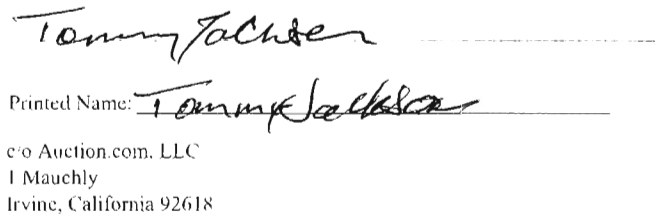 Tommy Jackson
Printed Name: Tommy Jackson
c/o Auction.com, LLC
1 Mauchly
Irvine, California 92618